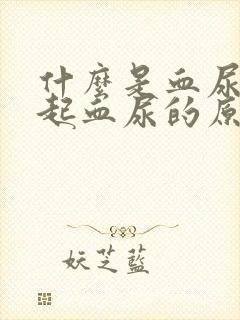 什麼是血尿
起血尿的原
妖芝藍